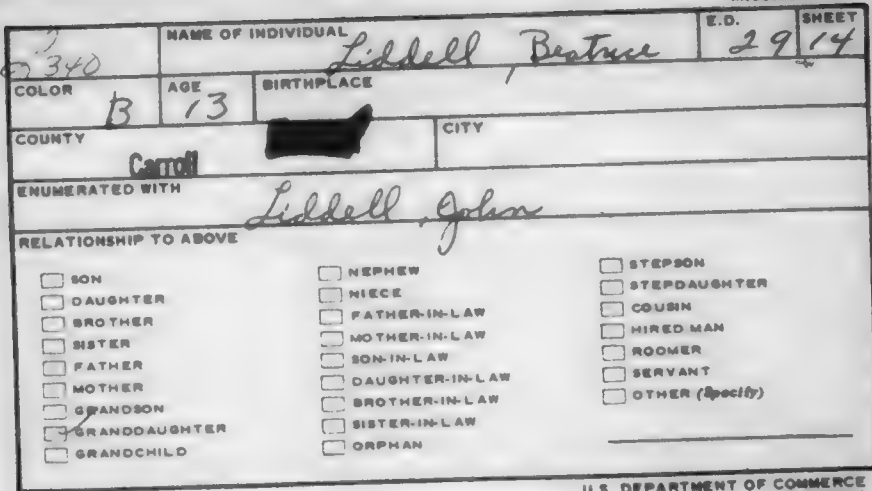 NAME OF INDIVIDUAL E.D. SHEET
340 Liddell, Beatrice 29 14
COLOR AGE BIRTHPLACE
B 13
COUNTY CITY
Carroll
ENUMERATED WITH
Liddell, John
RELATIONSHIP TO ABOVE
SON
DAUGHTER
BROTHER
SISTER
FATHER
MOTHER
GRANDSON
GRANDDAUGHTER
GRANDCHILD
NEPHEW
NIECE
FATHER-IN-LAW
MOTHER-IN-LAW
SON-IN-LAW
DAUGHTER-IN-LAW
BROTHER-IN-LAW
SISTER-IN-LAW
ORPHAN
STEPSON
STEPDAUGHTER
COUSIN
HIRED MAN
ROOMER
SERVANT
OTHER (Specify)
U.S. DEPARTMENT OF COMMERCE